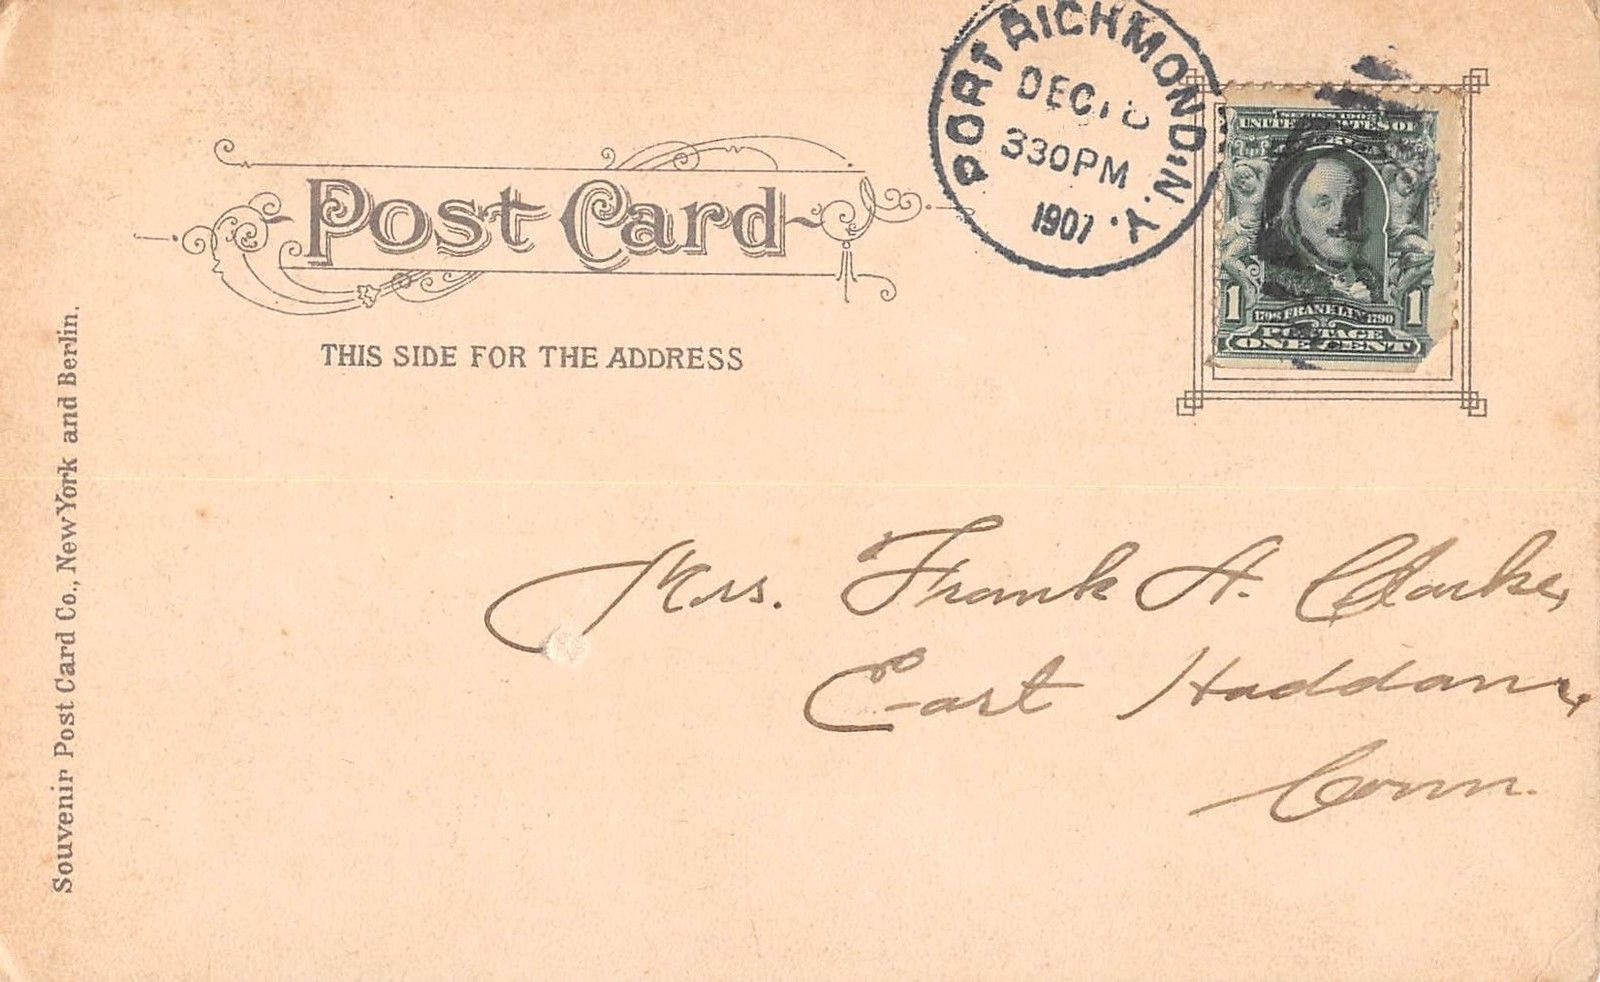 PORT RICHMOND, N.Y.
DEC
330PM
1907
SERIES 1902
UNITED STATES OF
1
1
FRANKLIN 1790
POSTAGE
ONE CENT
Post Card
THIS SIDE FOR THE ADDRESS
Mrs. Frank A. Clarke,
East Haddam,
Conn.
Souvenir Post Card Co., New York and Berlin.